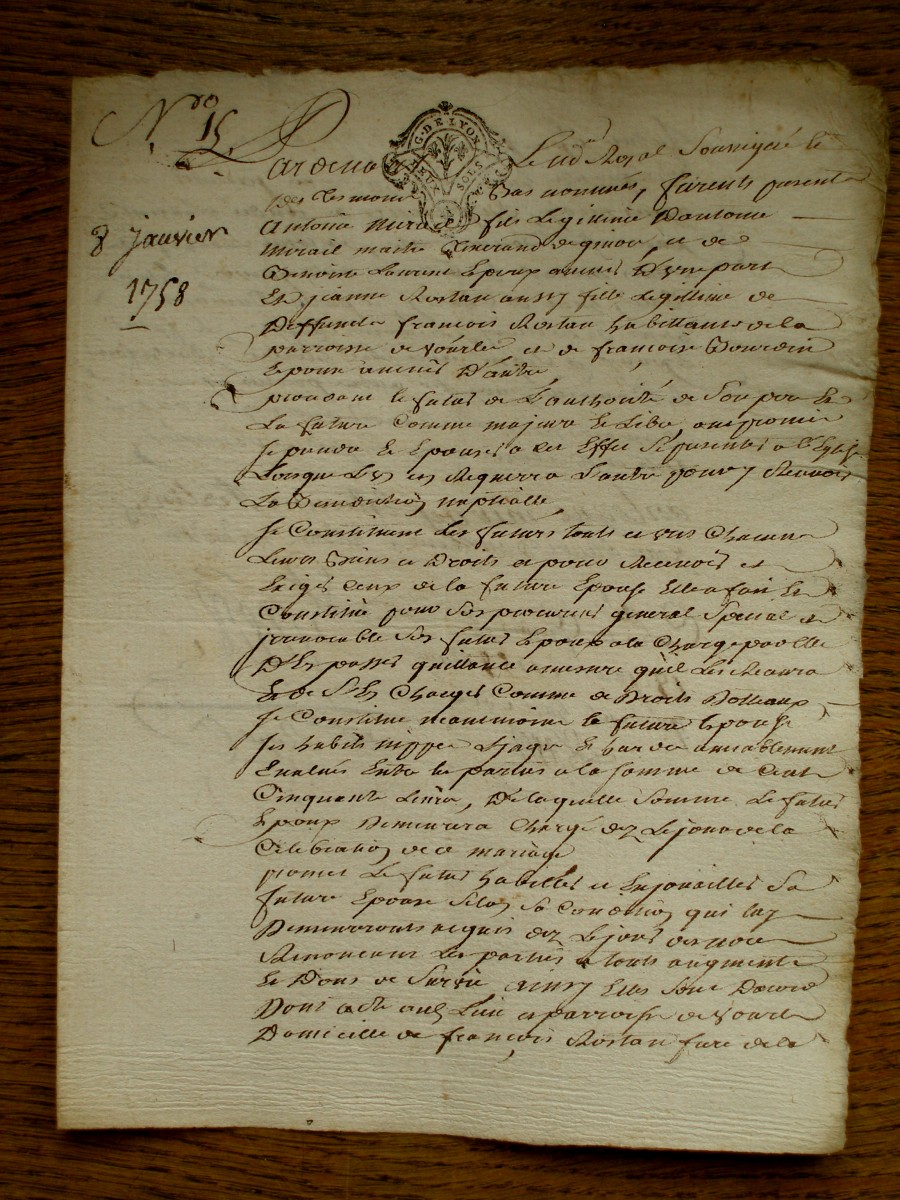 Nro 15
8 janvier
1758
G. DE LYON
DEUX SOLS
Pardevant Le nore Royal Soussigné et
des tesmoins Bas nommés, furents presents
Antoine Mirail fils Legitime D'antoine
Mirail maitre de et de
Benoite Laurent Epoux avenir D'une part
Et jeanne Rostan aussy fille Legitime de
Deffunct francois Rostan habittante de la
parroisse de vourle et de françoise Bourdin
Epouse avenir D'autre,
procedant le futur de L'authorité de Son pere Et
La future Comme majeure et Libre, ont promis
Se prendre Et Epouser a cet Effet Se presenter a L'Eglise
Lorsque L'un en Requerra L'autre pour y Recevoir
La Benediction nuptialle,
Se Constituent Les futurs touts et uns Chacuns
Leurs Biens et Droits et pour Recevoir et
Exiger Ceux de la future Epouse Elle a fait Et
Constitué pour Son procureur general Special et
irrevocable Son futur Epoux a la Charge par lle
D'En passer quittance a mesure qu'il Les Recevra
Et de S'En Charger Comme de Droits Dotteaux
Se Constitue neantmoins la future Epouse
Ses habits nippes amiablement
Evalués Entre les parties a la somme de Cent
Cinquante Livres, De laquelle Somme Le futur
Epoux Demeurera Chargé dez Le jour de la
Celebration de ce mariage
promet Le futur habiller et Enjoailler Sa
future Epouse Selon Sa Condition qui luy
Demeureront acquis dez Le jour des noces
Renoncent Les parties a touts augments
Et Dons de Survie, ainsy Elles Sont D'accord
Dont acte au Lieu et parroisse de vourle
Domicille de francois Rostan frere de la